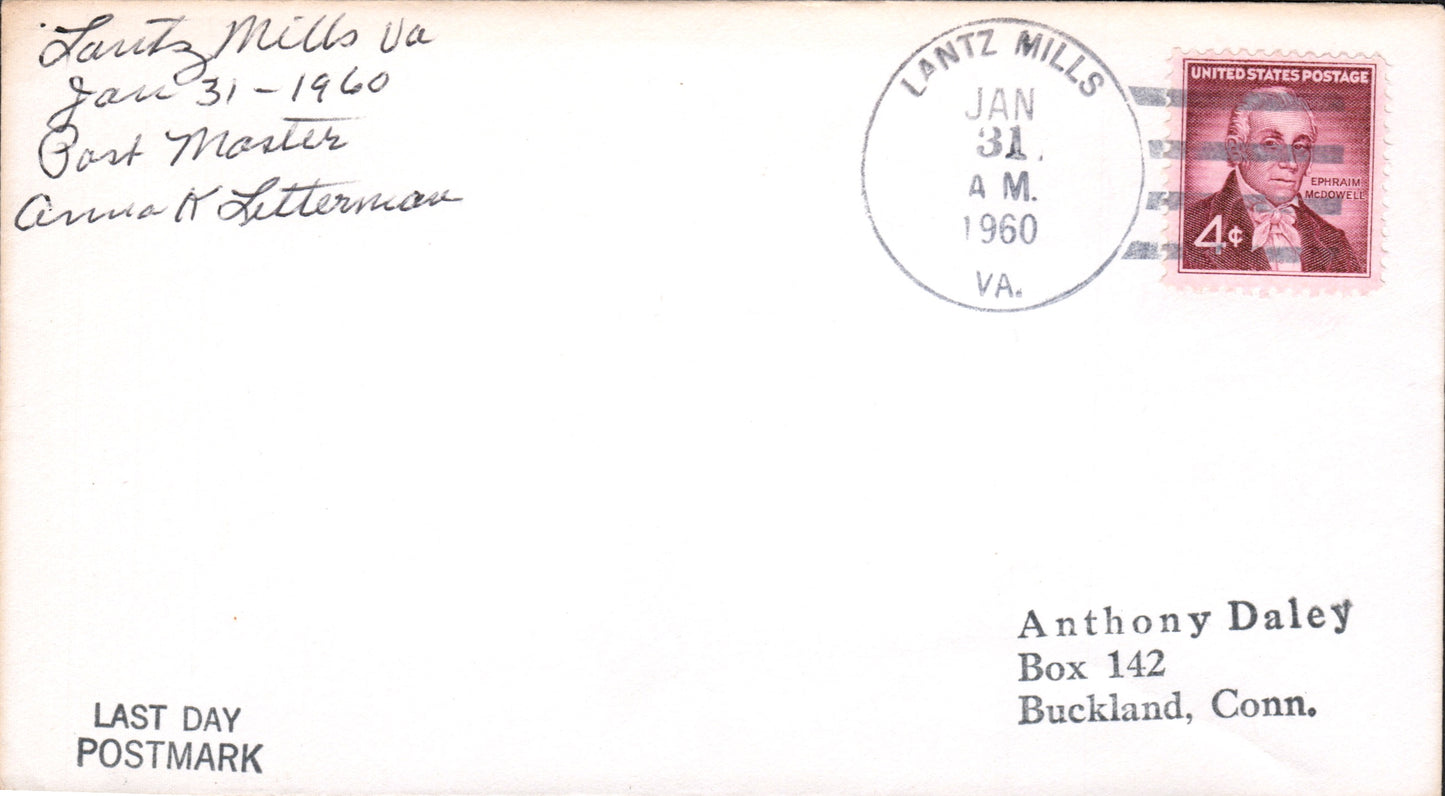 Lantz Mills Va
Jan 31-1960
Post Master
Anna K Letterman
LANTZ MILLS
JAN
31
A M.
1960
VA.
UNITED STATES POSTAGE
EPHRAIM
McDOWELL
4¢
Anthony Daley
Box 142
Buckland, Conn.
LAST DAY
POSTMARK